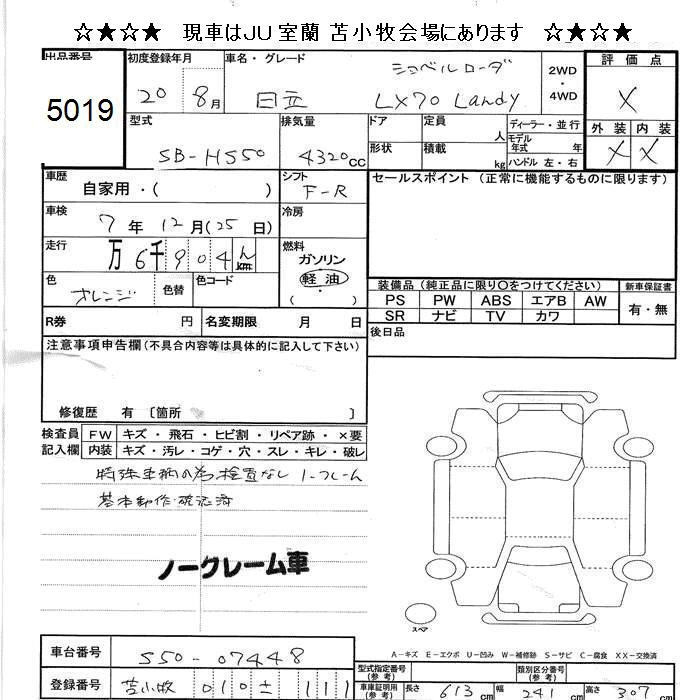 ☆★☆★ 現車はJU室蘭 苫小牧会場にあります ☆★☆★
出品番号
5019
初度登録年月
20 8月
車名・グレード
ショベルローダ
日立 LX70 Landy
2WD
・
4WD
評価点
X
型式
SB-HS50
排気量
4320cc
ドア
形状
定員
人
積載
kg
ディーラー・並行
モデル
年式 年
ハンドル 左・右
外装 内装
X X
車歴
自家用・( )
シフト
F-R
セールスポイント (正常に機能するものに限ります)
車検
7年12月(25日)
冷房
走行
万6千904
km
燃料
ガソリン
軽油
( )
色
オレンジ
色替
色コード
装備品(純正品に限り○をつけてください)
新車保証書
PS PW ABS エアB AW
有・無
SR ナビ TV カワ
R券 円
名変期限 月 日
後日品
注意事項申告欄(不具合内容等は具体的に記入して下さい)
修復歴 有 〔箇所 〕
検査員
記入欄
FW キズ・飛石・ヒビ割・リペア跡・×要
内装 キズ・汚レ・コゲ・穴・スレ・キレ・破レ
特殊車両の為検査なし ノークレーム
基本動作確認済
ノークレーム車
スペア
A-キズ E-エクボ U-凹み W-補修跡 S-サビ C-腐食 XX-交換済
車台番号
S50-07448
登録番号
苫小牧 010 た 111
型式指定番号
(参考)
類別区分番号
(参考)
車庫証明用
(参考)
長さ 613cm 幅 241cm 高さ 307cm